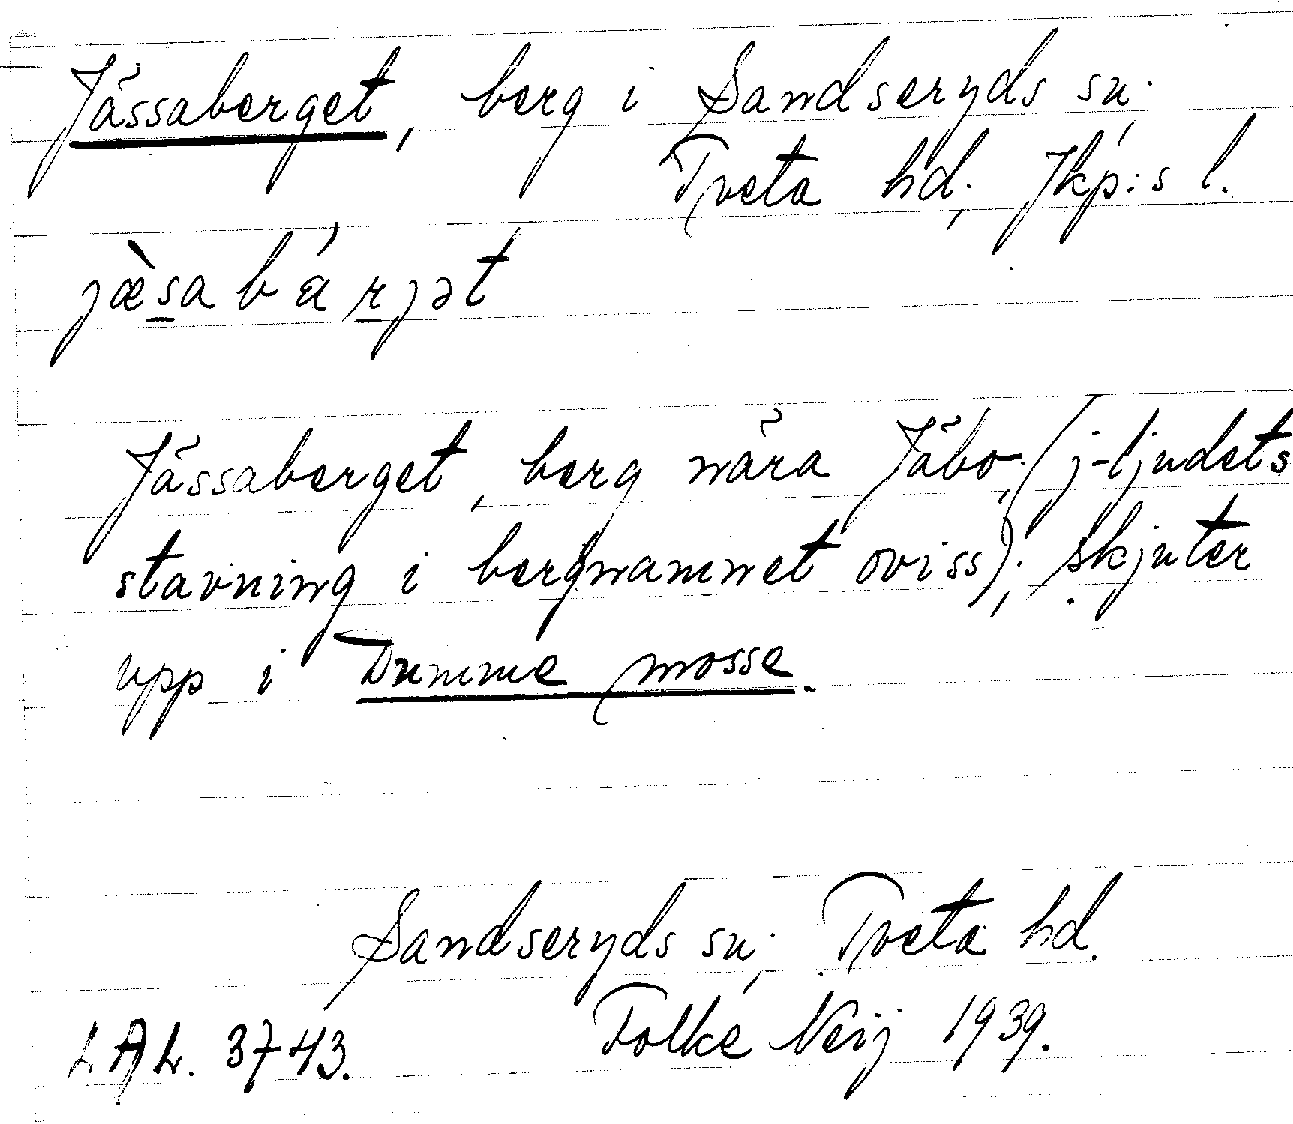 Jässaberget, berg i Sandseryds sn.
Tveta hd, Jkp:s l.
jæ̀sabárjət
Jässaberget, berg nära Jäbo, (j-ljudets
stavning i bergnamnet oviss); skjuter
upp i Dumme mosse.
Sandseryds sn; Tveta hd.
LAL. 3743. Folke Neij 1939.